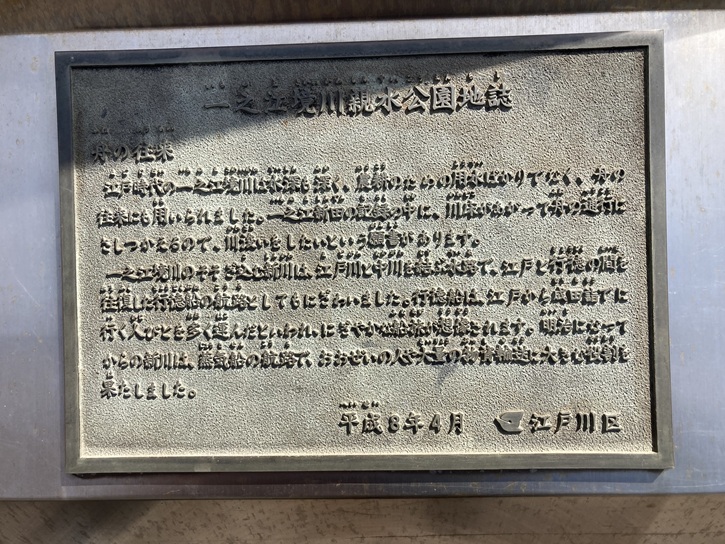 一之江境川親水公園地誌
舟の往来
江戸時代の一之江境川は水深も深く、農耕のための用水ばかりでなく、舟の
往来にも用いられました。一之江新田の記録の中に、川床があがって舟の運行に
さしつかえるので、川浚いをしたいという願書があります。
一之江境川のそそぎ込む新川は、江戸川と中川を結ぶ水路で、江戸と行徳の間を
往復した行徳船の航路としてもにぎわいました。行徳船は、江戸から成田詣でに
行く人びとも多く運んだといわれ、にぎやかな船旅が想像されます。明治になって
からの新川は、蒸気船の航路で、おおぜいの人や大量の物資輸送に大きな役割を
果たしました。
平成8年4月 江戸川区